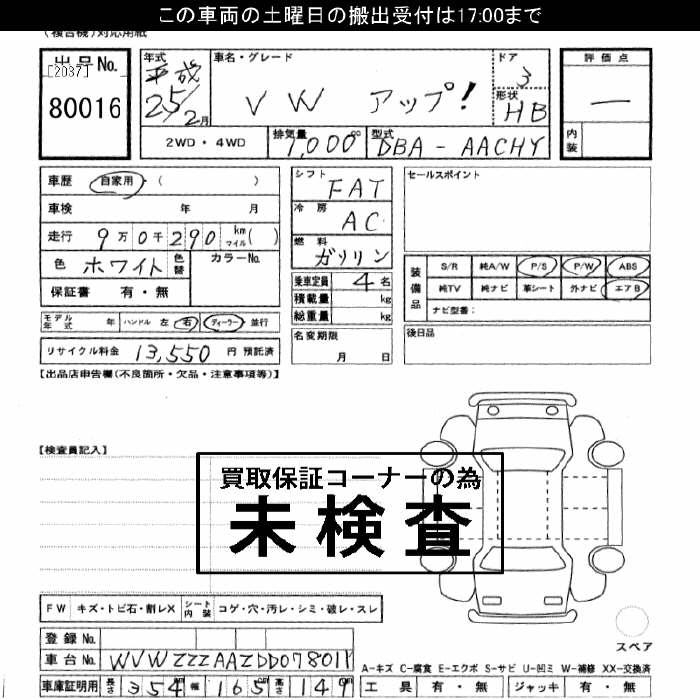 この車両の土曜日の搬出受付は17:00まで
(複合機)対応用紙
出品No.
[2037]
80016
年式
平成
25/2月
車名・グレード
VW アップ!
ドア
3
形状
HB
評価点
―
内装
2WD・4WD
排気量
1,000cc
型式
DBA-AACHY
車歴 自家用・( )
車検 年 月
走行 9万0千290 km マイル( )
色 ホワイト 色替
カラーNo.
保証書 有・無
シフト
FAT
冷房
AC
燃料
ガソリン
乗車定員 4名
積載量 kg
総重量 kg
名変期限
月 日
セールスポイント
装備品
S/R 純A/W P/S P/W ABS
純TV 純ナビ 革シート 外ナビ エアB
ナビ型番:
後日品
モデル年式 年 ハンドル 左 右 ディーラー 並行
リサイクル料金 13,550 円 預託済
【出品店申告欄(不良箇所・欠品・注意事項等)】
【検査員記入】
買取保証コーナーの為
未検査
FW キズ・トビ石・割レX シート内装 コゲ・穴・汚レ・シミ・破レ・スレ
登録No.
車台No. WVWZZZAAZDD078011
車庫証明用 長さ 354 cm 幅 165 cm 高さ 149
スペア
A-キズ C-腐食 E-エクボ S-サビ U-凹ミ W-補修 XX-交換済
工具 有・無 ジャッキ 有・無